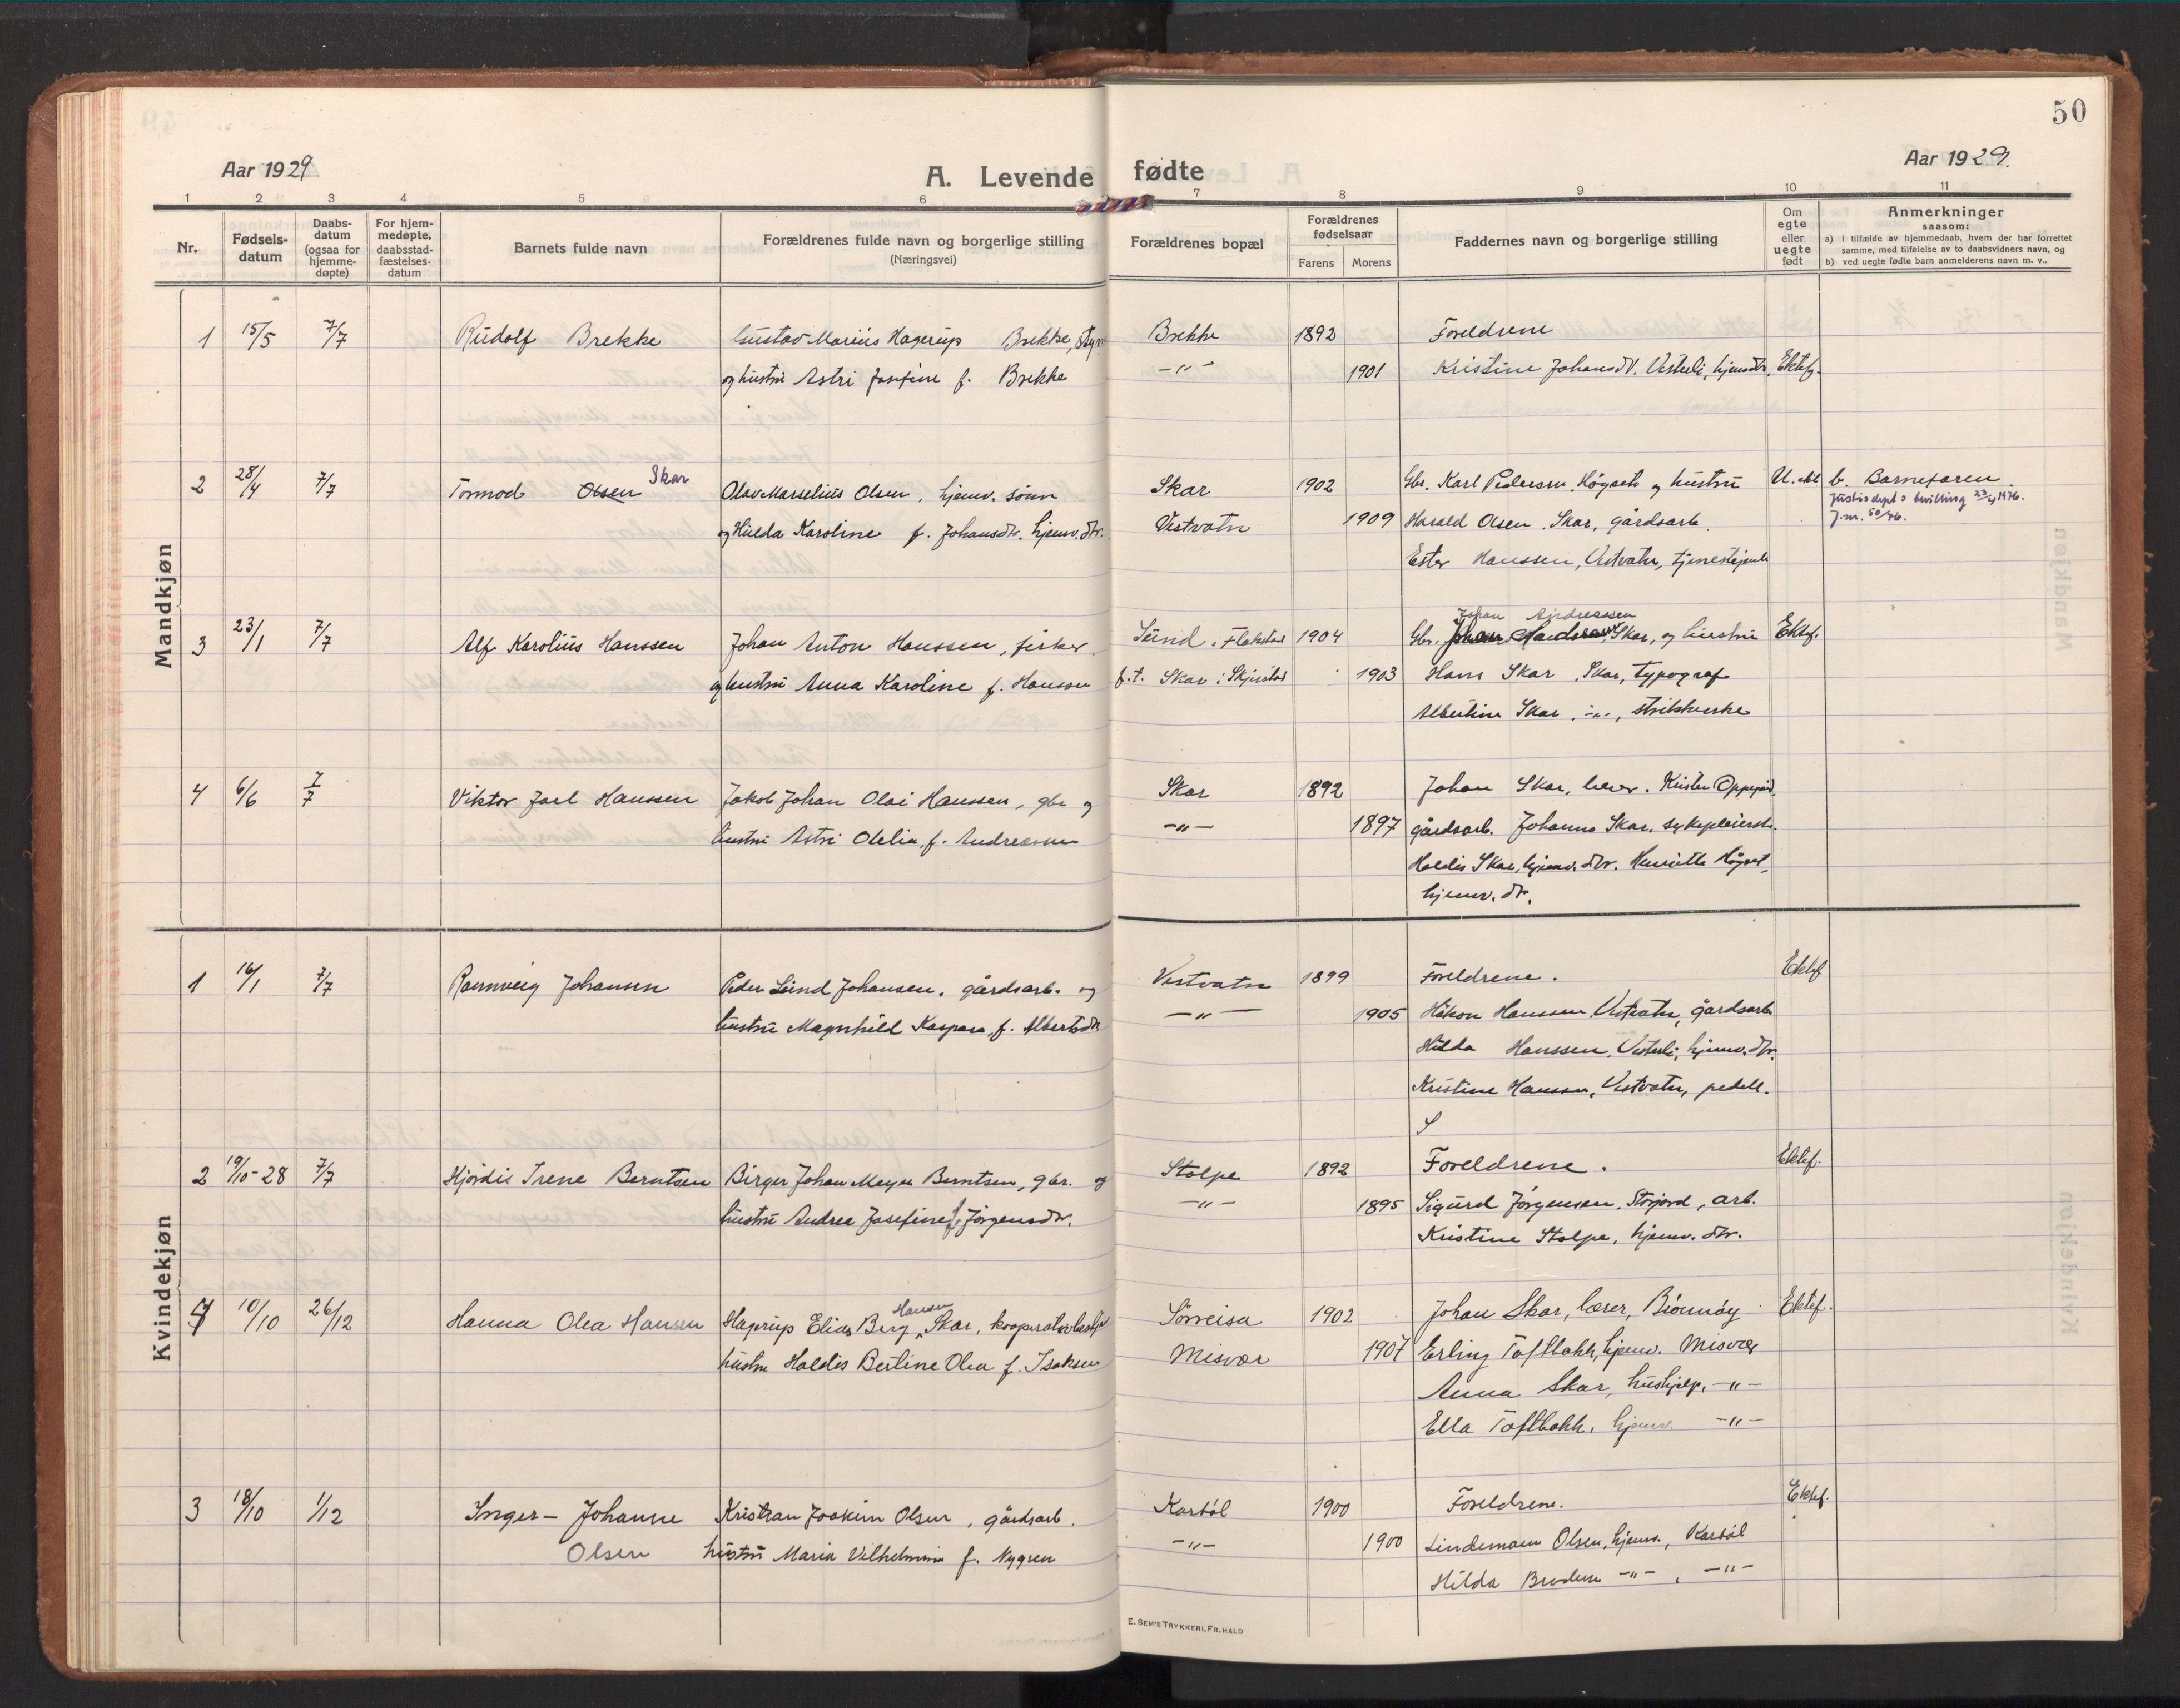 50
Aar 1929
A. Levende fødte
Aar 1929.
1 2 3 4 5 6 7 8 9 10 11
Nr.
Fødsels-datum
Daabs-datum (ogsaa for hjemme-døpte)
For hjem-medøpte, daabsstad-fæstelses-datum
Barnets fulde navn
Forældrenes fulde navn og borgerlige stilling (Næringsvei)
Forældrenes bopæl
Forældrenes fødselsaar
Farens Morens
Faddernes navn og borgerlige stilling
Om egte eller uegte født
Anmerkninger
saasom:
a) I tilfælde av hjemmedaab, hvem der har forrettet samme, med tilføielse av to daabsvidners navn, og
b) ved uegte fødte barn anmelderens navn m. v..
Mandkjøn
1 15/5 7/7 Rudolf Brekke Gustav Marius Hagerup Brekke, Brekke 1892 Foreldrene
og hustru Astri Josefine f. Brekke -"- 1901 Kristine Johansdt. Vesterli, hjemdtr. Ektef.
2 28/4 7/7 Tormod Olsen Skar Olav Marselius Olsen, hjemv. sönn Skar 1902 Gbr. Karl Pedersen, Högseth og hustru U. ekt b. Barnefaren.
og Hilda Karoline f. Johansdtr. hjemv. dtr. Vestvatn 1909 Harald Olsen, Skar, gårdsarb. Justisdept's bevilling 23/4 1946.
J.nr. 50/46.
Ester Hanssen, Vestvatn, tjenestejente
3 23/1 7/7 Alf Karolius Hanssen Johan Anton Hanssen, fisker. Sund i Flakstad 1904 Gbr. Johan Andreassen Skar, og hustru Ektef.
og hustru Anna Karoline f. Hanssen f.t. Skar i Skjerstad 1903 Hans Skar, Skar, typograf
Albertine Skar, -"-, strikkerske
4 6/6 7/7 Viktor Jarl Hanssen Jakob Johan Olai Hanssen, gbr og Skar 1892 Johan Skar, lærer.
hustru Astri Otelia, f. Andreassen -"- 1897 gårdsarb. Johanna Skar, sykepleierske.
Haldis Skar, hjemv. dtr. Henriette Högset,
hjemv. dtr.
Kvindekjøn
1 16/1 7/7 Rannveig Johansen Peder Lund Johansen, gårdsarb. og Vestvatn 1899 Foreldrene. Ektef
hustru Magnhild Kaspara, f. Albertsdtr -"- 1905 Håkon Hanssen, Vestvatn, gårdsarb
Hilda Hanssen, Vesterli, hjemv. dtr.
Kristine Hanssen, Vestvatn, pedell.
2 19/10-28 7/7 Hjördis Irene Berntsen Birger Johan Meyer Berntsen, gbr. og Stolpe 1892 Foreldrene. Ektef.
hustru Andrea Josefine f. Jörgensdtr. -"- 1895 Sigurd Jörgensen, Storjord, arb.
Kristine Stolpe, hjemv. dtr.
4 10/10 26/12 Hanna Olea Hansen Hagerup Elias Berg Hansen Skar, Sörreisa 1902 Johan Skar, lærer, Brönnöy Ektef.
hustru Haldis Bertine Olea f. Isaksen Misvær 1907 Erling Toftbakk, hjemv. Misvær
Anna Skar, hushjelp, -"-
Ella Toftbakk, hjemv. -"-
3 18/10 1/12 Inger-Johanne Kristian Joakim Olsen, gårdsarb. Karböl 1900 Foreldrene. Ektef.
Olsen hustru Maria Vilhelmine f. Nygren -"- 1900 Lindemann Olsen, hjemv., Karböl
Hilda -"-, -"-
E. SEM'S TRYKKERI, FR. HALD